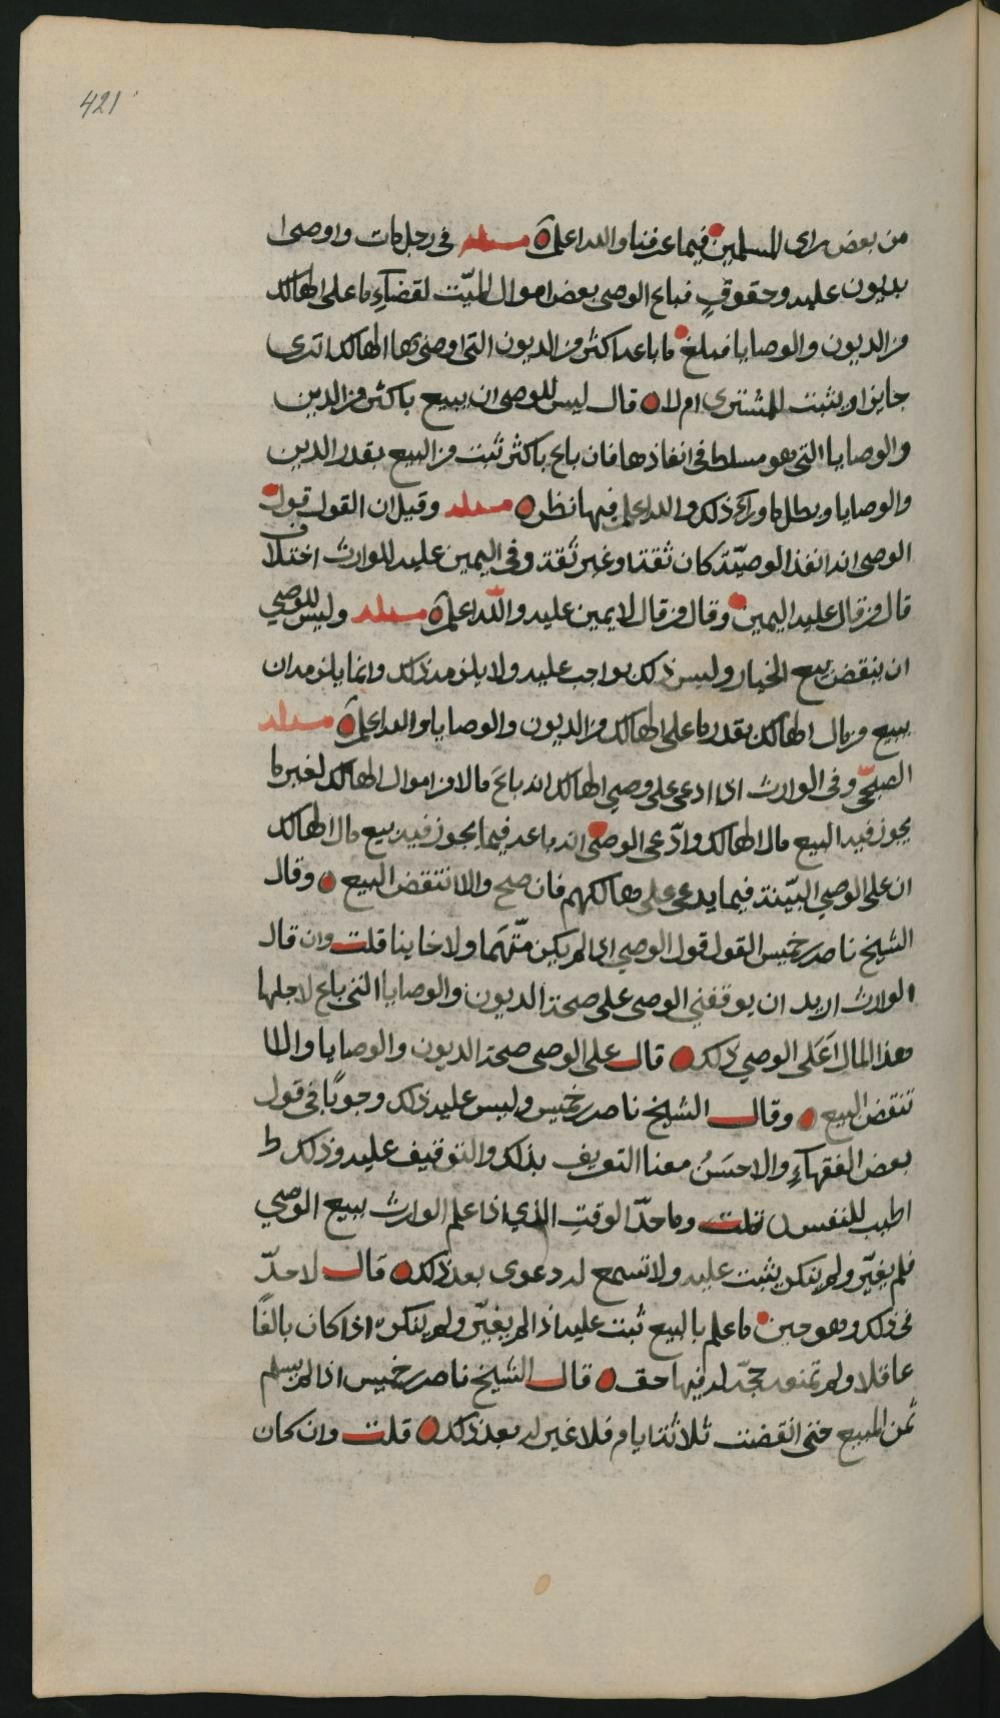 421
من بعض راي المسلمين فيما عرفنا والله اعلم مسئلة في رجل مات واوصى
بديون عليه وحقوقٍ فباع الوصي بعض اموال الميّت لقضآءِ ما على الهالك
من الديون والوصايا فبلغ ما باعه اكثر من الديون التي اوصى بها الهالك اترى
جايزا ويثبت للمشتري ام لا قال ليس للوصي ان يبيع باكثر من الدين
والوصايا التي هو مسلط في انفاذها فان باع باكثر ثبت من البيع بقدر الدين
والوصايا وبطل ما وراء ذلك والله اعلم فيها نظر مسئلة وقيل ان القول قول
الوصي انه انفذ الوصيّة كان ثقة او غير ثقة وفي اليمين عليه للوارث اختلاف
قال من قال عليه اليمين وقال من قال لا يمين عليه واللّه اعلم مسئلة وليس للوصي
ان ينقض بيع الخيار وليس ذلك بواجب عليه ولا يلزمه ذلك وانما يلزمه ان
يبيع من مال الهالك بقدر ما على الهالك من الديون والوصايا والله اعلم مسئلة
الصبحّي وفي الوارث اذا ادعى على وصي الهالك انه باعَ مالا من اموال الهالك لغير ما
يجوز فيه البيع مال الهالك وادّعى الوصي انه باعه فيما يجوز فيه بيع مال الهالك
ان على الوصي البيّنة فيما يدعي على هالكهم فان صح والا انتقض البيع وقال
الشيخ ناصر بن خميس القول قول الوصي اذا لم يكن متّهَما ولا خاينا قلت وان قال
الوارث اريد ان يوقفني الوصي على صحة الديون والوصايا التي باع لاجلها
هذا المال اَعَلى الوصي ذلك قال على الوصي صحة الديون والوصايا والا
تنقض البيع وقال الشيخ ناصر بن خميس وليس عليه ذلك وجوبًا في قول
بعض الفقهآءِ والاحسَنُ معنا التعريف بذلك والتوقيف عليه وذلك
اطيب للنفس قلت وما حدّ الوقتِ الذي اذا علم الوارث ببيع الوصي
فلم يغيّر ولم ينكر يثبت عليه ولا تسمع له دعوى بعد ذلك قال لا حدّ
في ذلك وهو حين ما علم بالبيع ثبت عليه اذا لم يغيّر ولم ينكر اذا كان بالغًا
عاقلا ولم تمنعه حجّة له فيها حق قال الشيخ ناصر بن خميس اذا لم يسلم
ثمن المبيع حتى انقضت ثلاثة ايام فلا غير له بعد ذلك قلت وان كان